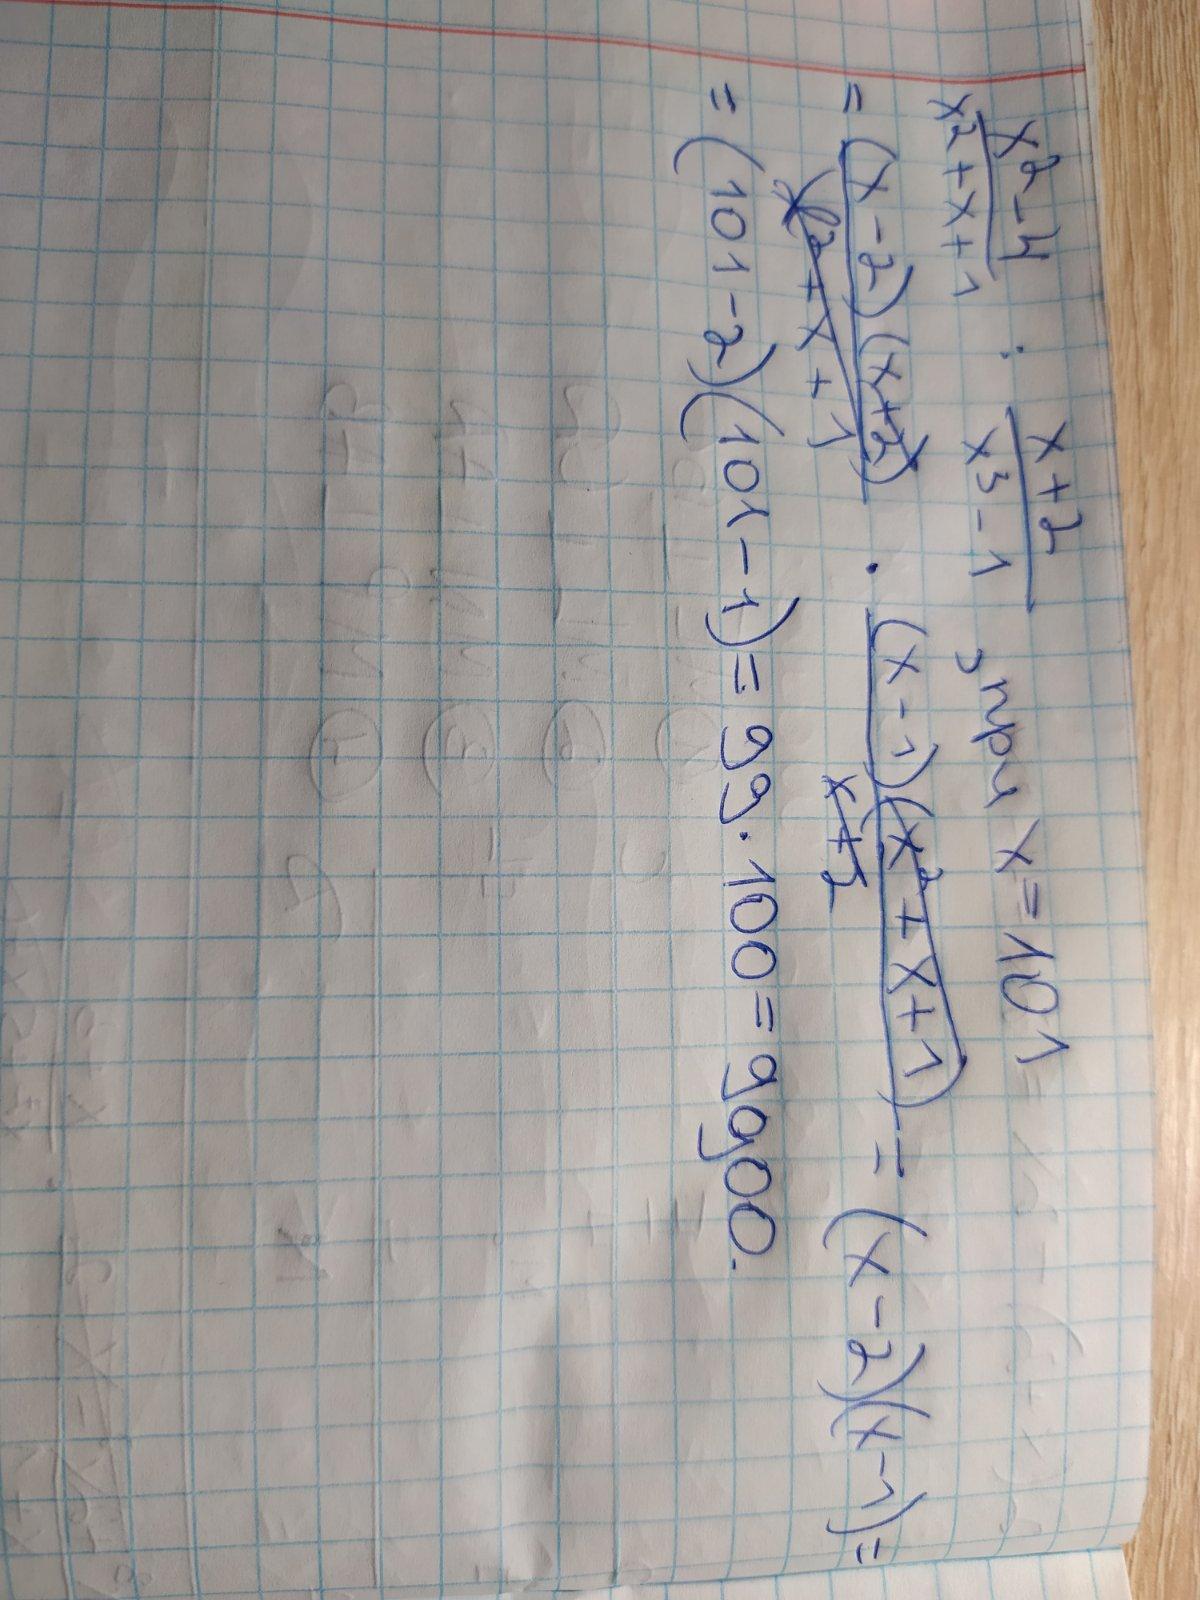 x²-4 / x²+x+1 : x+2 / x³-1 , при x=101
= (x-2)(x+2) / (x²+x+1) · (x-1)(x²+x+1) / x+2 = (x-2)(x-1)=
= (101-2)(101-1)=99·100=9900.